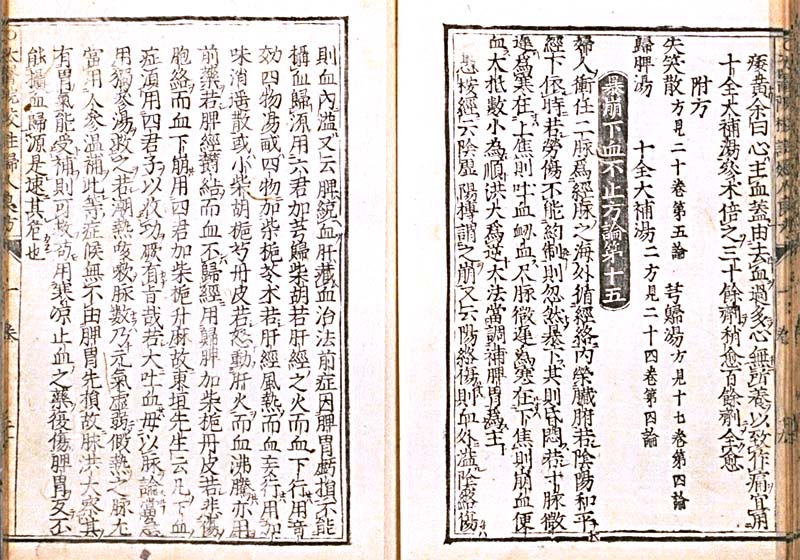 痿黃余曰心主血蓋由去血過多心無所養以致作痛宜用
十全大補湯參朮倍之三十餘劑稍愈百餘劑全愈
附方
失笑散方見二十卷第五論 芎歸湯方見十七卷第四論
歸脾湯 十全大補湯二方見二十四卷第四論
暴崩下血不止方論第十五
婦人衝任二脉爲經脉之海外循經絡內榮臟腑若陰陽和平
經下依時若勞傷不能約制則忽然暴下甚則昏悶若寸脉微
遲爲寒在上焦則吐血衄血尺脉微遲爲寒在下焦則崩血便
血大抵數小為順洪大爲逆大法當調補脾胃爲主
愚按經云陰虛陽搏謂之崩又云陽絡傷則血外溢陰絡傷
則血內溢又云脾統血肝藏血治法前症因脾胃虧損不能
攝血歸源用六君加芎歸柴胡若肝經之火而血下行用奇
效四物湯或四物加柴梔苓朮若肝經風熱而血妄行用加
味消遥散或小柴胡梔芍丹皮若怒動肝火而血沸騰亦用
前藥若脾經鬱結而血不歸經用歸脾加柴梔丹皮若悲傷
胞絡而血下崩用四君加柴梔升麻故東垣先生云凡下血
症須用四君子以收功厥有旨哉若大吐血毋以脉論當急
用獨參湯救之若潮熱咳嗽脉數乃元氣虛弱假熱之脉尤
當用人參溫補此等症候無不由脾胃先損故脉洪大察其
有胃氣能受補則可救苟用寒凉止血之藥復傷脾胃反不
能攝血歸源是速其危也
太醫院校註婦人良方 一卷